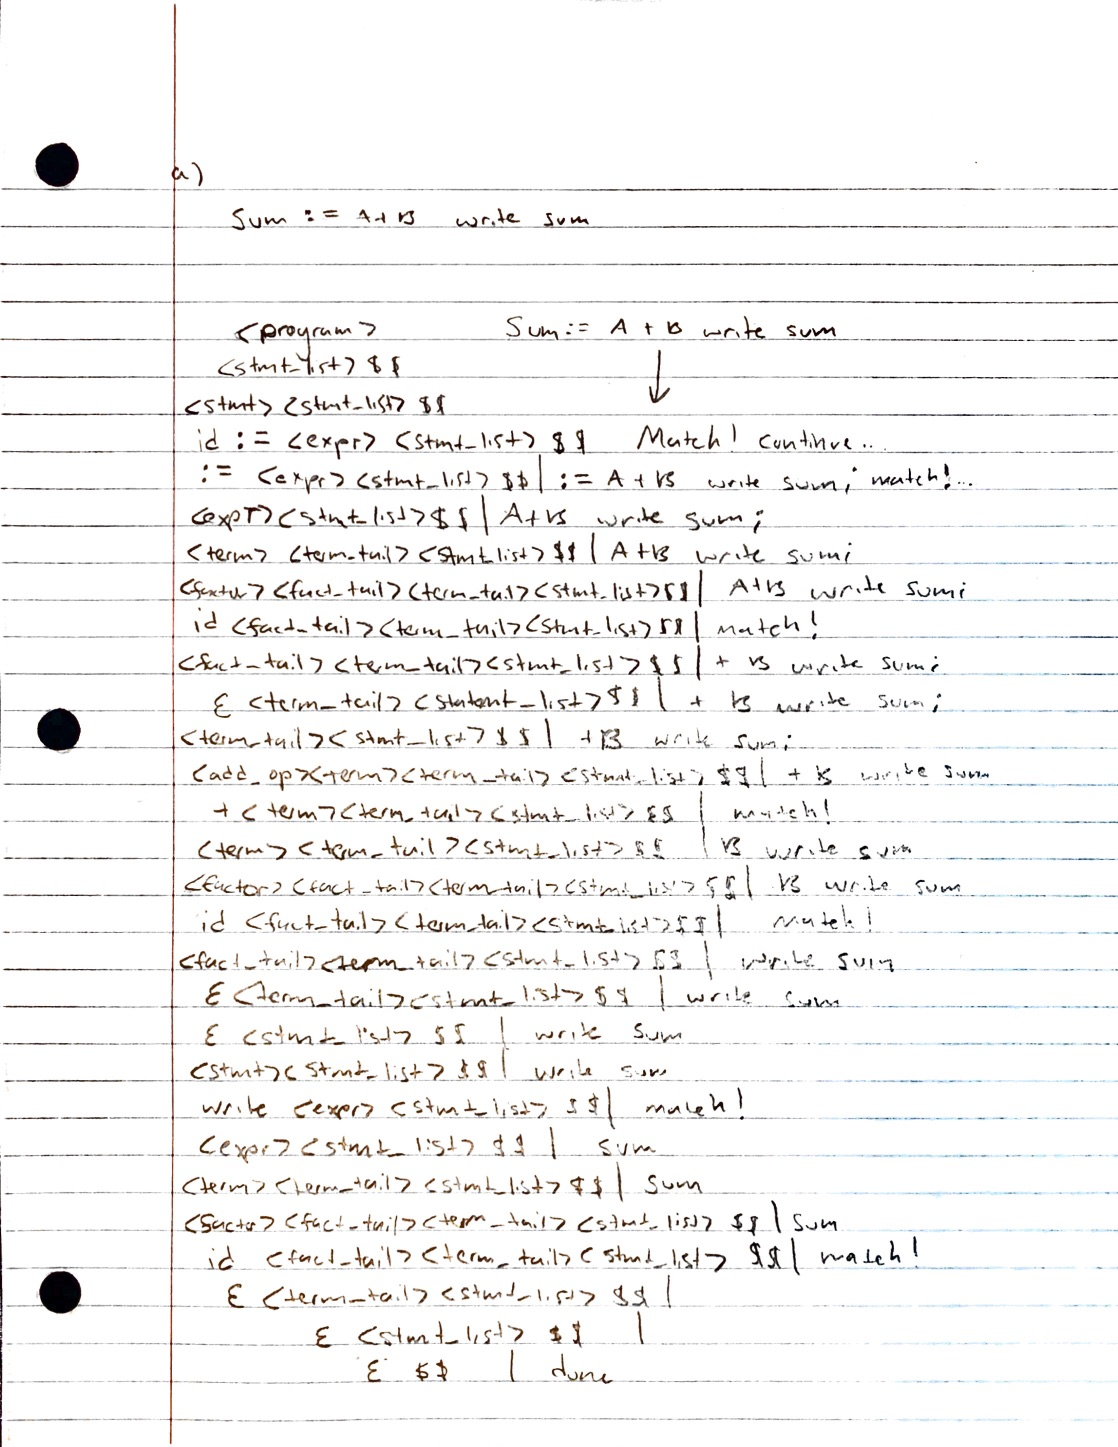 a)
Sum := A+B write sum
<program> Sum:= A + B write sum
<stmt_list> $$
<stmt> <stmt_list> $$
id := <expr> <stmt_list> $$ Match! continue..
:= <expr> <stmt_list> $$ | := A + B write sum; match!...
<expr><stmt_list>$$ | A+B write sum;
<term> <term_tail> <stmt_list> $$ | A+B write sum;
<factor> <fact_tail> <term_tail> <stmt_list>$$ | A+B write sum;
id <fact_tail><term_tail><stmt_list> $$ | match!
<fact_tail> <term_tail><stmt_list> $$ | + B write sum;
ε <term_tail> <statent_list> $$ | + B write sum;
<term_tail><stmt_list> $$ | +B write sum;
<add_op><term><term_tail> <stmt_list> $$ | + B write sum
+ <term><term_tail> <stmt_list> $$ | match!
<term> <term_tail> <stmt_list> $$ | B write sum
<factor> <fact_tail><term_tail><stmt_list> $$ | B write sum
id <fact_tail><term_tail><stmt_list>$$ | Match!
<fact_tail><term_tail><stmt_list> $$ | write sum
ε <term_tail><stmt_list> $$ | write sum
ε <stmt_list> $$ | write sum
<stmt><stmt_list> $$ | write sum
write <expr> <stmt_list> $$ | match!
<expr> <stmt_list> $$ | sum
<term> <term_tail> <stmt_list> $$ | sum
<factor> <fact_tail> <term_tail> <stmt_list> $$ | sum
id <fact_tail> <term_tail> <stmt_list> $$ | match!
ε <term_tail> <stmt_list> $$ |
ε <stmt_list> $$ |
ε $$ | done